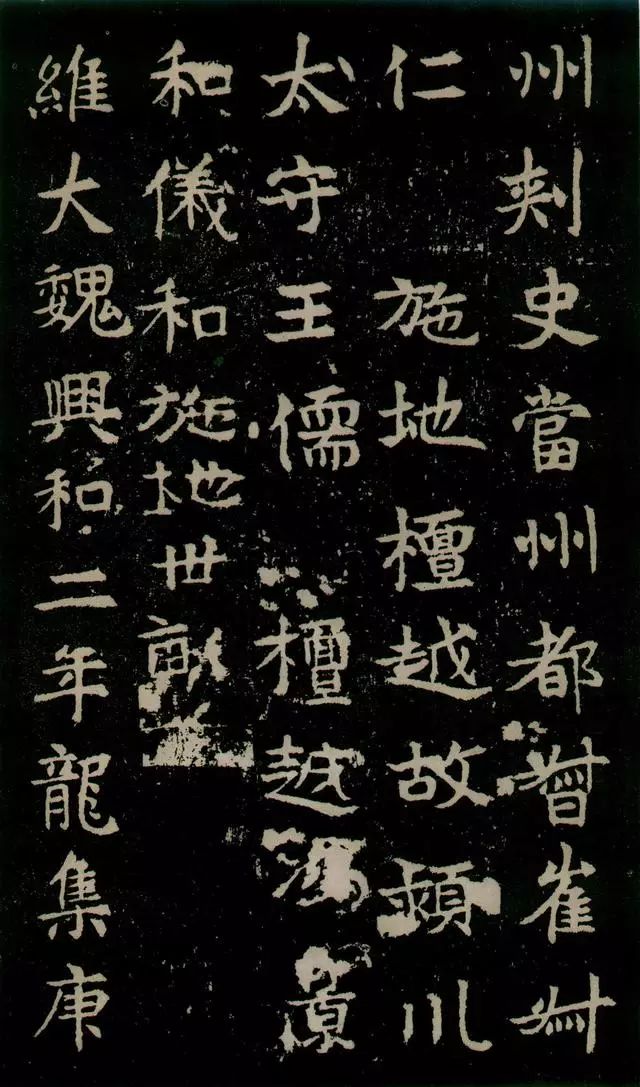 州刾史當州都督崔叔
仁 施地檀越故潁川
太守王儒 檀越
和儀和施地卅
維大魏興和二年龍集庚